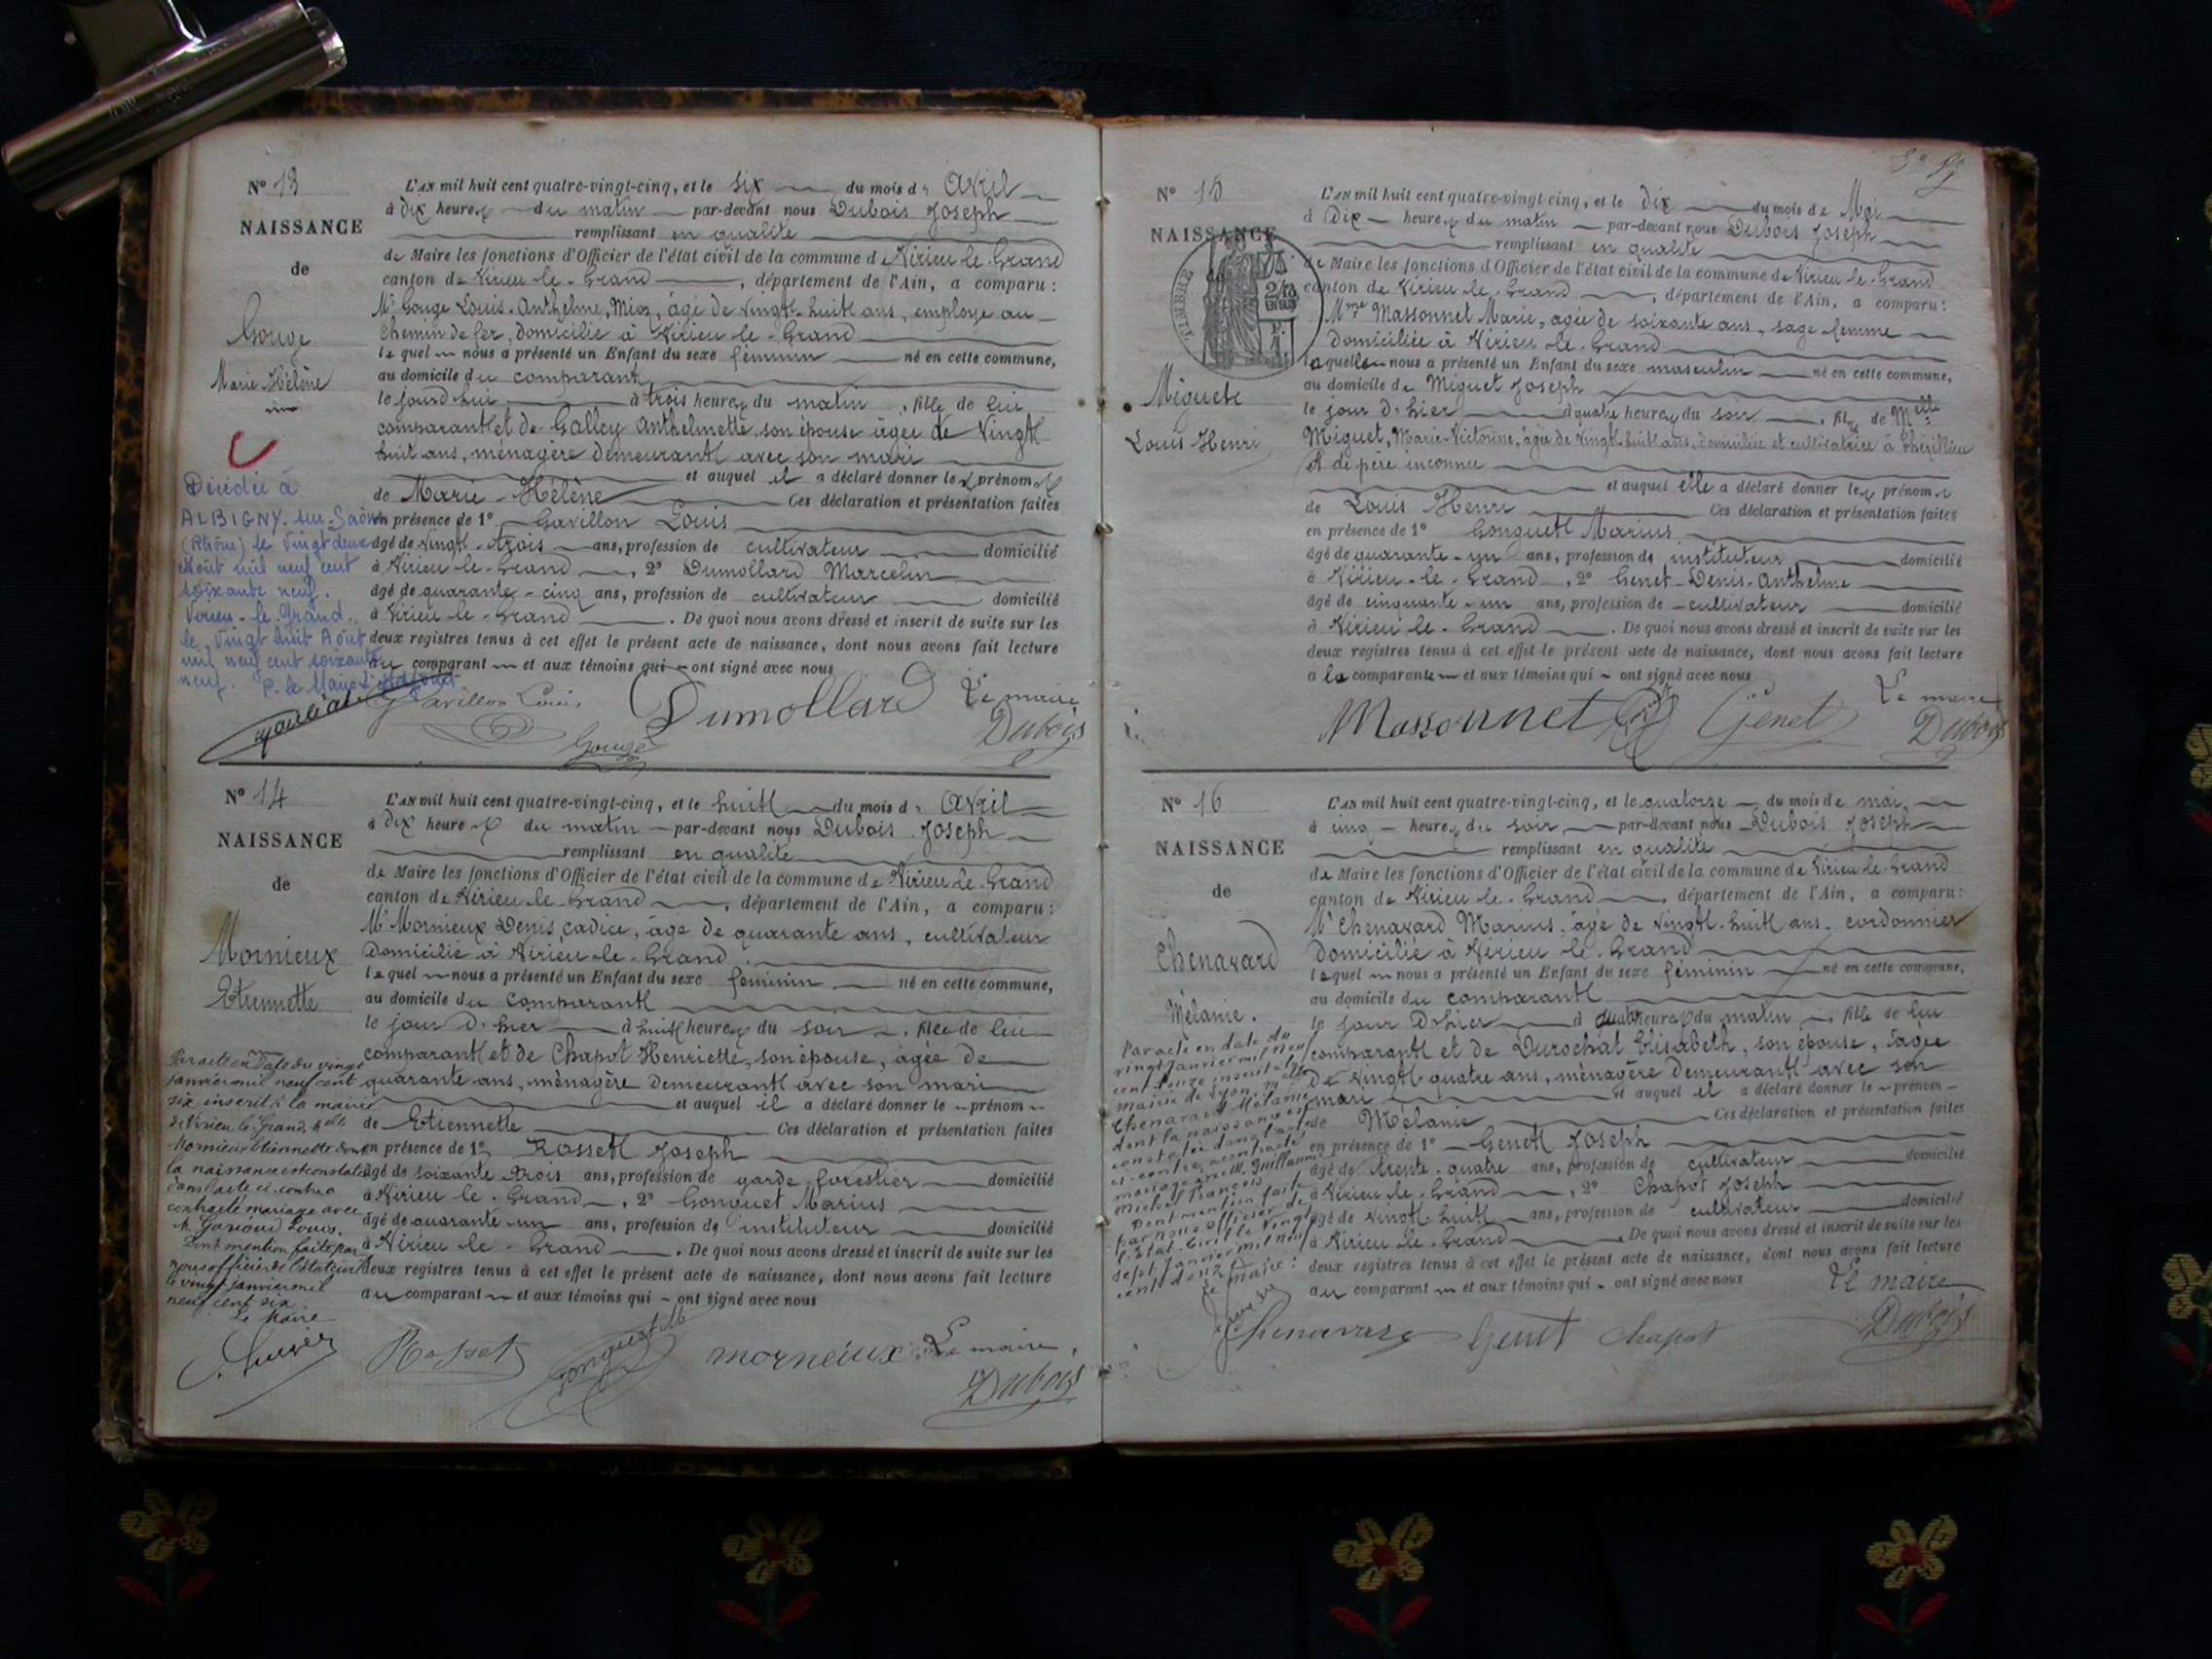 N° 13
NAISSANCE
de
Gouge
Marie Hélène
L'AN mil huit cent quatre-vingt-cinq, et le six du mois d'Avril
à dix heures du matin par-devant nous Dubois Joseph
remplissant en qualité
de Maire les fonctions d'Officier de l'état civil de la commune de Virieu-le-Grand
canton de Virieu-le-Grand, département de l'Ain, a comparu:
Mr Gouge Louis-Anthelme, âgé de vingt-huit ans, employé au
chemin de fer, domicilié à Virieu-le-Grand
lequel nous a présenté un Enfant du sexe féminin né en cette commune,
au domicile du comparant
le jourd'hui à trois heures du matin, fille de lui
comparant et de Galley Anthelmette, son épouse âgée de vingt-
huit ans, ménagère demeurant avec son mari
et auquel il a déclaré donner les prénoms
de Marie-Hélène Ces déclaration et présentation faites
en présence de 1° Gavillon Louis
âgé de vingt-trois ans, profession de cultivateur domicilié
à Virieu-le-Grand, 2° Dumollard Marcelin
âgé de quarante-cinq ans, profession de cultivateur domicilié
à Virieu-le-Grand. De quoi nous avons dressé et inscrit de suite sur les
deux registres tenus à cet effet le présent acte de naissance, dont nous avons fait lecture
au comparant et aux témoins qui ont signé avec nous
Décédée à
ALBIGNY-sur-Saône
(Rhône) le vingt deux
Août mil neuf cent
soixante neuf.
Virieu-le-Grand.
le vingt huit Août
mil neuf cent soixante
neuf. P. le Maire
Gavillon Louis
Gouge
Dumollard
Le maire
Dubois
N° 14
NAISSANCE
de
Mornieux
Etiennette
L'AN mil huit cent quatre-vingt-cinq, et le huit du mois d'Avril
à dix heures du matin par-devant nous Dubois Joseph
remplissant en qualité
de Maire les fonctions d'Officier de l'état civil de la commune de Virieu-le-Grand
canton de Virieu-le-Grand, département de l'Ain, a comparu:
Mr Mornieux Denis, âgé de quarante ans, cultivateur
domicilié à Virieu-le-Grand
lequel nous a présenté un Enfant du sexe féminin né en cette commune,
au domicile du comparant
le jour d'hier à huit heures du soir, fille de lui
comparant et de Chapot Henriette, son épouse, âgée de
quarante ans, ménagère demeurant avec son mari
et auquel il a déclaré donner le prénom
de Etiennette Ces déclaration et présentation faites
en présence de 1° Rosset Joseph
âgé de soixante trois ans, profession de garde forestier domicilié
à Virieu-le-Grand, 2° Gonguet Marius
âgé de quarante un ans, profession de instituteur domicilié
à Virieu-le-Grand. De quoi nous avons dressé et inscrit de suite sur les
deux registres tenus à cet effet le présent acte de naissance, dont nous avons fait lecture
au comparant et aux témoins qui ont signé avec nous
Par acte en date du vingt
janvier mil neuf cent
six inscrit à la mairie
de Virieu le Grand, Melle
Mornieux Etiennette dont
la naissance est constatée
dans l'acte ci-contre a
contracté mariage avec
M. Louis.
Dont mention faite par
nous officier de l'état civil
le vingt janvier mil
neuf cent six.
Le Maire
Rosset
Gonguet M
morneiux
Le maire,
Dubois
N° 15
NAISSANCE
TIMBRE
Miguet
Louis Henri
L'AN mil huit cent quatre-vingt-cinq, et le dix du mois de Mai
à dix heures du matin par-devant nous Dubois Joseph
remplissant en qualité
de Maire les fonctions d'Officier de l'état civil de la commune de Virieu-le-Grand
canton de Virieu-le-Grand, département de l'Ain, a comparu:
Mme Massonnet Marie, âgée de soixante ans, sage femme
domiciliée à Virieu-le-Grand
laquelle nous a présenté un Enfant du sexe masculin né en cette commune,
au domicile de Miguet Joseph
le jour d'hier à quatre heures du soir, fils de Melle
Miguet, Marie-Victorine, âgée de vingt-huit ans, domiciliée et cultivatrice à
et de père inconnu
et auquel elle a déclaré donner les prénoms
de Louis Henri Ces déclaration et présentation faites
en présence de 1° Gonguet Marius
âgé de quarante-un ans, profession de instituteur domicilié
à Virieu-le-Grand, 2° Genet-Denis-Anthelme
âgé de cinquante-un ans, profession de cultivateur domicilié
à Virieu-le-Grand. De quoi nous avons dressé et inscrit de suite sur les
deux registres tenus à cet effet le présent acte de naissance, dont nous avons fait lecture
a la comparante et aux témoins qui ont signé avec nous
Massonnet
Genet
Le maire
Dubois
N° 16
NAISSANCE
de
Chenavard
Mélanie.
L'AN mil huit cent quatre-vingt-cinq, et le quatorze du mois de mai
à cinq heures du soir par-devant nous Dubois Joseph
remplissant en qualité
de Maire les fonctions d'Officier de l'état civil de la commune de Virieu-le-Grand
canton de Virieu-le-Grand, département de l'Ain, a comparu:
Mr Chenavard Marius, âgé de vingt-huit ans, cordonnier
domicilié à Virieu-le-Grand
lequel nous a présenté un Enfant du sexe féminin né en cette commune,
au domicile du comparant
le jour d'hier à heures du matin, fille de lui
comparant et de Durochat Elisabeth, son épouse, âgée
de vingt-quatre ans, ménagère demeurant avec son
mari et auquel il a déclaré donner le prénom
de Mélanie Ces déclaration et présentation faites
en présence de 1° Genet Joseph
âgé de trente-quatre ans, profession de cultivateur domicilié
à Virieu-le-Grand, 2° Chapot Joseph
âgé de vingt-huit ans, profession de cultivateur domicilié
à Virieu-le-Grand. De quoi nous avons dressé et inscrit de suite sur les
deux registres tenus à cet effet le présent acte de naissance, dont nous avons fait lecture
au comparant et aux témoins qui ont signé avec nous
Par acte en date du
vingt janvier mil neuf
cent douze inscrit à la
mairie de Lyon, Melle
Chenavard Mélanie
dont la naissance est
constatée dans l'acte
ci-contre a contracté
mariage avec M. Guillaume
Michel François
Dont mention faite
par nous officier de
l'Etat-Civil le vingt
sept janvier mil neuf
cent douze
Le maire:
Chenavard
Genet
Chapot
Le maire
Dubois